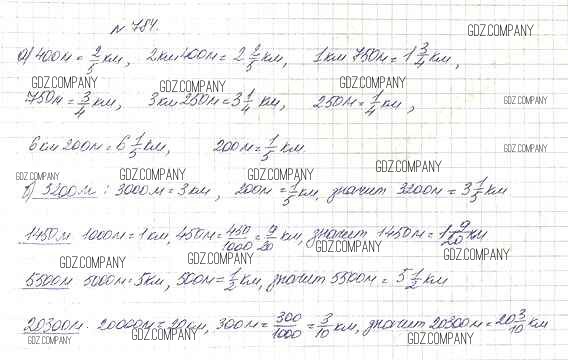 № 784.
GDZ.COMPANY
а) 400м = 2/5 км, 2км 400м = 2 2/5 км, 1км 750м = 1 3/4 км,
GDZ.COMPANY GDZ.COMPANY GDZ.COMPANY
750м = 3/4 км, 3км 250м = 3 1/4 км, 250м = 1/4 км,
GDZ.COMPANY
6км 200м = 6 1/5 км, 200м = 1/5 км.
GDZ.COMPANY
GDZ.COMPANY GDZ.COMPANY GDZ.COMPANY
б) 3200м : 3000м = 3км, 200м = 1/5 км, значит 3200м = 3 1/5 км
1450м 1000м = 1км, 450м = 450/1000 = 9/20 км, значит 1450м = 1 9/20 км
GDZ.COMPANY GDZ.COMPANY GDZ.COMPANY GDZ.COMPANY
5500м 5000м = 5км, 500м = 1/2 км, значит 5500м = 5 1/2 км
20300м. 20000м = 20км, 300м = 300/1000 = 3/10 км, значит 20300м = 20 3/10 км
GDZ.COMPANY GDZ.COMPANY GDZ.COMPANY